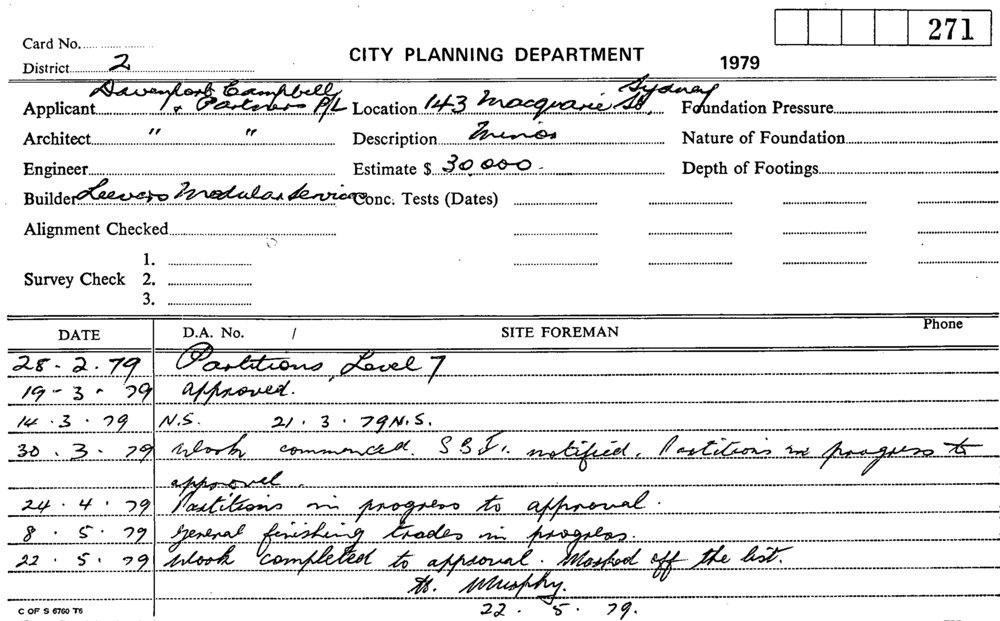 271
Card No.
CITY PLANNING DEPARTMENT 1979
District 2
Applicant Davenport Campbell & Partners P/L Location 143 Macquarie St. Sydney Foundation Pressure
Architect " " Description Minor Nature of Foundation
Engineer Estimate $ 30,000. Depth of Footings
Builder Leevers Modular Services Conc. Tests (Dates)
Alignment Checked
1.
Survey Check 2.
3.
DATE D.A. No. / SITE FOREMAN Phone
28.2.79 Partitions, Level 7
19-3-79 approved.
14.3.79 N.S. 21.3.79 N.S.
30.3.79 Work commenced. notified. Partitions in progress to
approval.
24.4.79 Partitions in progress to approval.
8.5.79 General finishing trades in progress.
22.5.79 Work completed to approval. Marked off the list.
Murphy.
22.5.79.
C OF S 6760 T6